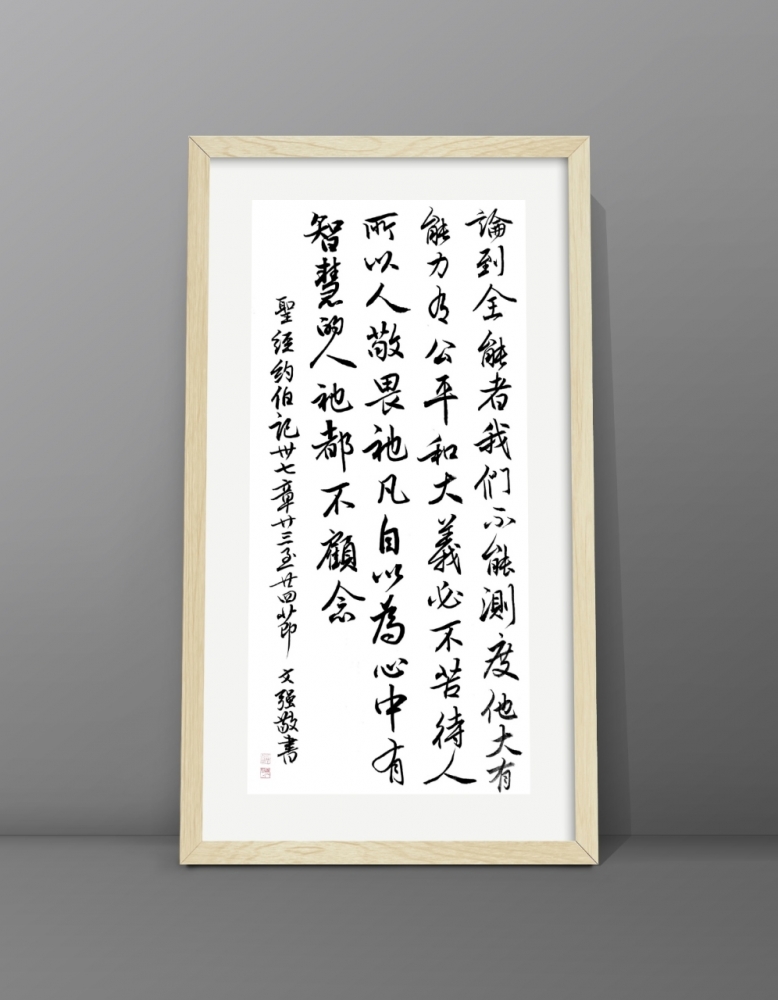 論到全能者我們不能測度他大有
能力有公平和大義必不苦待人
所以人敬畏祂凡自以為心中有
智慧的人祂都不顧念
聖經約伯記卅七章廿三至廿四節 文强敬書